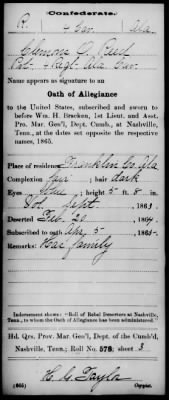 Confederate.
R. 4 Cav. Ala
Clemons C. Reed
Pvt. 4 Regt. Ala Cav.
Name appears as signature to an
Oath of Allegiance
to the United States, subscribed and sworn to
before Wm. H. Bracken, 1st Lieut. and Asst.
Pro. Mar. Gen'l, Dept. Cumb., at Nashville,
Tenn., at the dates set opposite the respective
names, 1865.
Place of residence Franklin Co. Ala
Complexion fair; hair dark
Eyes blue; height 5 ft. 8 in.
Vol. Sept. 1863.
Deserted Feb. 20, 1864.
Subscribed to oath Apr. 5, 1865.
Remarks: Has family
Indorsement shows: "Roll of Rebel Deserters at Nashville,
Tenn., to whom the Oath of Allegiance has been administered."
Hd. Qrs. Prov. Mar. Gen'l, Dept. of the Cumb'd,
Nashville, Tenn.; Roll No. 578; sheet 3
H. C. Taylor
(665) Copyist.